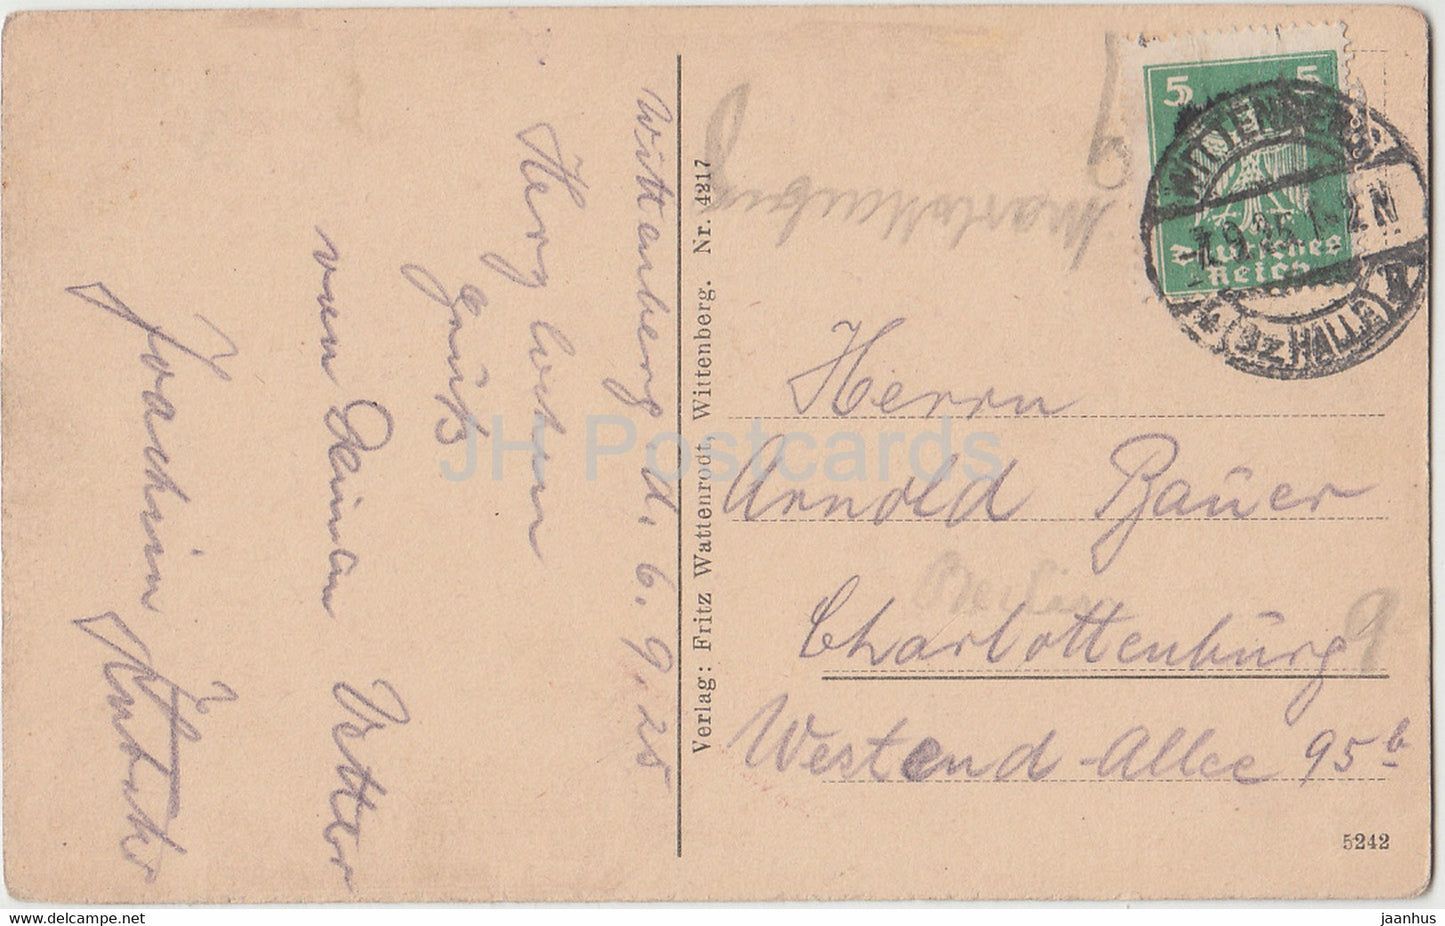 Wittenberg, d. 6. 9. 25
Herzlichen
Gruß
von Deinem Vetter
Joachim
Verlag: Fritz Wattenrodt, Wittenberg. Nr. 4217
5 5
Deutsches
Reich
WITTENBERG
7.9.25. 1-2N
(BZ HALLE)
Herrn
Arnold Bauer
Berlin
Charlottenburg 9
Westend-Allee 95b
5242
JH Postcards
HIPPOSTCARD.COM
jaanhus